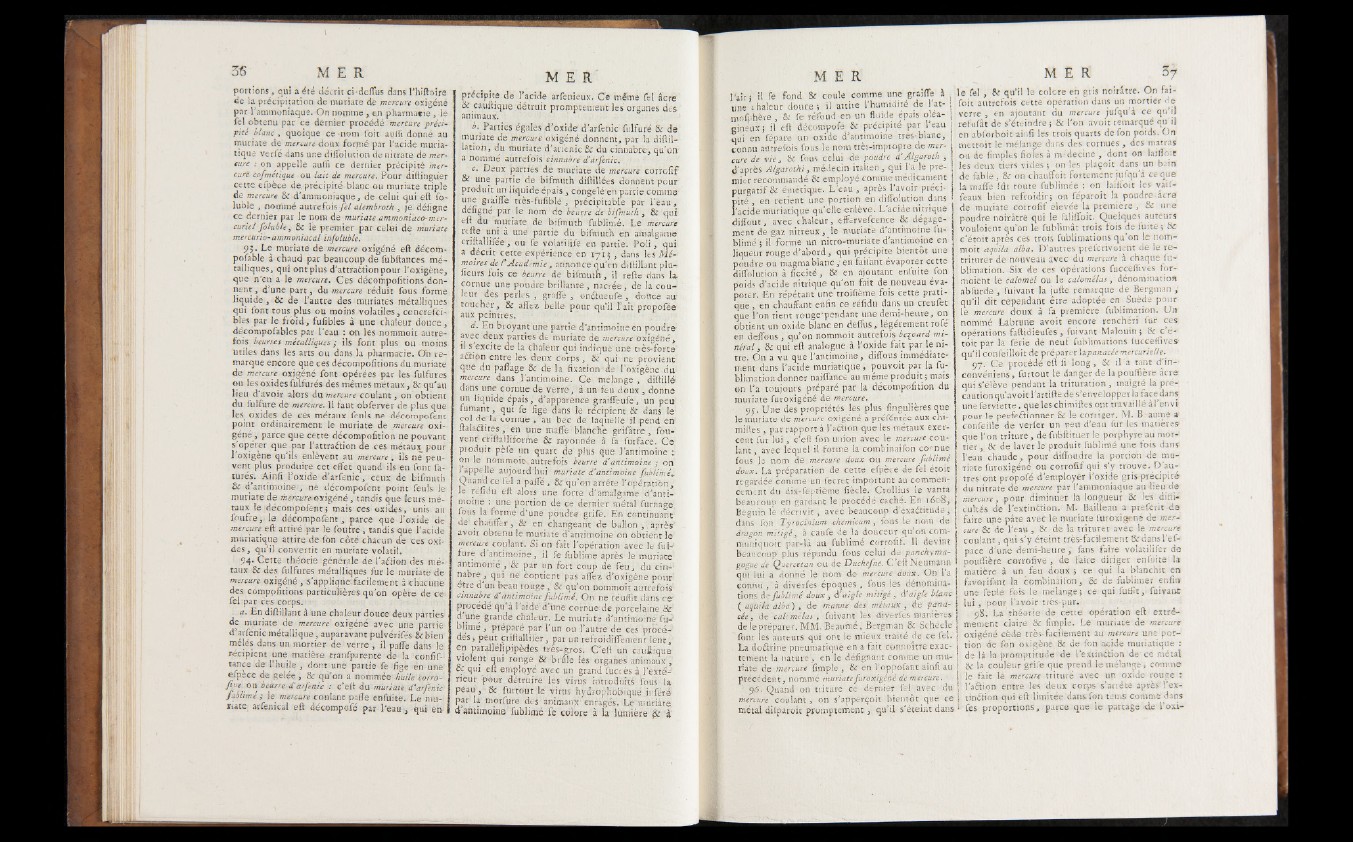 36 M E R
portions, qui a été décrit ci-dessus dans l'histoire
de la précipitation de muriate de mercure oxigéné
par l'ammoniaque. On nomme, en pharmacie, le
sel obtenu par ce dernier procédé mercure préci-
pité blanc, quoique ce nom soit aussi donné au
muriate de mercure doux formé par l'acide muria-
tique versé dans une dissolution de nitrate de mer-
cure : on appelle aussi ce dernier précipité mer-
cure cosmétique ou lait de mercure. Pour distinguer
cette espèce de précipité blanc ou muriate triple
de mercure & d'ammoniaque, de celui qui est so-
luble, nommé autrefois sel alembroth, je désigne
ce dernier par le nom de muriate ammoniaco-mer-
curiel soluble, & le premier par celui de muriate
mercurio-ammoniacal insoluble.
93. Le muriate de mercure oxigéné est décom-
posable à chaud par beaucoup de substances mé-
talliques, qui ont plus d'attraction pour l'oxigène,
que n'en a le mercure. Ces décompositions don-
nent, d'une part, du mercure réduit sous forme
liquide, & de l'autre des muriates métalliques
qui sont tous plus ou moins volatiles, concresci-
bles par le froid, fusibles à une chaleur douce,
décomposables par l'eau : on les nommoit autre-
fois beurres métalliques ; ils sont plus ou moins
utiles dans les arts ou dans la pharmacie. On re-
marque encore que ces décompositions du muriate
de mercure oxigéné sont opérées par les sulfures
ou les oxides sulfurés des mêmes métaux, & qu'au
lieu d'avoir alors du mercure coulant, on obtient
du sulfure de mercure. Il faut observer de plus que
les oxides de ces métaux seuls ne décomposent
point ordinairement le muriate de mercure oxi-
géné, parce que cette décomposition ne pouvant
s'opérer que par l'attraction de ces métaux pour
l'oxigène qu'ils enlèvent au mercure, ils ne peu-
vent plus produire cet effet quand ils en sont sa-
turés. Ainsi l'oxide d'arsenic, ceux de bismuth
& d'antimoine, ne décomposent point seuls le
muriate de mercure oxigéné, tandis que leurs mé-
taux le décomposent ; mais ces oxides, unis au
soufre, le décomposent, parce que l'oxide de
mercure est attiré par le soufre, tandis que l'acide
muriatique attire de son côté chacun de ces oxi-
des, qu'il convertit en muriate volatil.
94. Cette théorie générale de l'action des mé-
taux & des sulfures métalliques sur le muriate de
mercure oxigéné, s'applique facilement à chacune
des compositions particulières qu'on opère de ce
sel par ces corps.
a. En distillant à une chaleur douce deux parties
de muriate de mercure oxigéné avec une partie
d'arsenic métallique, auparavant pulvérisés & bien
mêlés dans un mortier de verre, il passe dans le
récipient une matière transparente de la consis-
tance de l'huile, dont une partie se fige en une
espèce de gelée, & qu'on a nommée huile corro-
sive ou beurre d'arsenic : c'est du muriate d'arsenic
sublimé ; le mercure coulant passe ensuite. Le mu-
riate arsenical est décomposé par l'eau, qui en
M E R
précipite de l'acide arsenieux. Ce même sel âcre
& caustique détruit promptement les organes des
animaux.
b. Parties égales d'oxide d'arsenic sulfuré & de
muriate de mercure oxigéné donnent, par la distil-
lation, du muriate d'arsenic & du cinnabre, qu'on
a nommé autrefois cinnabre d'arsenic.
c. Deux parties de muriate de mercure corrosif
& une partie de bismuth distillées donnent pour
produit un liquide épais, congelé en partie comme
une graisse très-fusible, précipitable par l'eau,
désigné par le nom de beurre de bismuth, & qui
est du muriate de bismuth sublimé. Le mercure
reste uni à une partie du bismuth en amalgame
cristallisée, ou se volatilise en partie. Poli, qui
a décrit cette expérience en 1713, dans les Mé-
moires de l'Académie, annonce qu'en distillant plu-
sieurs fois ce beurre de bismuth, il reste dans la
cornue une poudre brillante, nacrée, de la cou-
leur des perles, grasse, onctueuse, douce au
toucher, & assez belle pour qu'il l'ait proposée
aux peintres.
d. En broyant une partie d'antimoine en poudre
avec deux parties de muriate de mercure oxigéné,
il s'excite de la chaleur qui indique une très-forte
action entre les deux corps, & qui ne provient
que du passage & de la fixation de l'oxigène du
mercure dans l'antimoine. Ce mélange, distillé
dans une cornue de verre, à un feu doux, donne
un liquide épais, d'apparence graisseuse, un peu
fumant, qui se fige dans le récipient & dans le
col de la cornue, au bec de laquelle il pend en
stalactites, en une masse blanche grisâtre, sou-
vent cristalliforme & rayonnée à sa surface. Ce
produit pèse un quart de plus que l'antimoine :
on le nommoit autrefois beurre d'antimoine ; on
l'appelle aujourd'hui muriate d'antimoine sublimé.
Quand ce sel a passé, & qu'on arrête l'opération,
le résidu est alors une sorte d'amalgame d'anti-
moine : une portion de ce dernier métal surnage
sous la forme d'une poudre grise. En continuant
de chauffer, & en changeant de ballon, après
avoir obtenu le muriate d'antimoine on obtient le
mercure coulant. Si on fait l'opération avec le sul-
fure d'antimoine, il se sublime après le muriate
antimonié, & par un fort coup de feu, du cin-
nabre, qui ne contient pas assez d'oxigène pour
être d'un beau rouge, & qu'on nommoit autrefois
cinnabre d'antimoine sublimé. On ne réussit dans ce
procédé qu'à l'aide d'une cornue de porcelaine &
d'une grande chaleur. Le muriate d'antimoine su-
blimé, préparé par l'un ou l'autre de ces procé-
dés, peut cristalliser, par un refroidissement lent,
en parallélipipèdes très-gros. C'est un caustique
violent qui ronge & brûle les organes animaux,
& qui est employé avec un grand succès à l'exté-
rieur pour détruire les virus introduits sous la
peau, & surtout le virus hydrophobique inséré
par la morsure des animaux enragés. Le muriate
d'antimoine sublimé se colore à la lumière & à
M E R
l'air ; il se fond & coule comme une graisse à
une chaleur douce ; il attire l'humidité de l'at-
mosphère, & se résoud en un fluide épais oléa-
gineux ; il est décomposé & précipité par l'eau
qui en sépare un oxide d'antimoine très-blanc,
connu autrefois sous le nom très-impropre de mer-
cure de vie, & sous celui de poudre d'Algaroth,
d'après Algarothi, médecin italien, qui l'a le pre-
mier recommandé & employé comme médicament
purgatif & émétique. L'eau, après l'avoir préci-
pité, en retient une portion en dissolution dans
l'acide muriatique qu'elle enlève. L'acide nitrique
dissout, avec chaleur, effervescence & dégage-
ment de gaz nitreux, le muriate d'antimoine su-
blimé ; il forme un nitro-muriate d'antimoine en
liqueur rouge d'abord, qui précipite bientôt une
poudre ou magma blanc, en faisant évaporer cette
dissolution à siccité, & en ajoutant ensuite son
poids d'acide nitrique qu'on fait de nouveau éva-
porer. En répétant une troisième fois cette prati-
que, en chauffant enfin ce résidu dans un creuset
que l'on tient rouge pendant une demi-heure, on
obtient un oxide blanc en dessus, légèrement rosé
en dessous, qu'on nommoit autrefois bézoard mi-
néral, & qui est analogue à l'oxide fait par le ni-
tre. On a vu que l'antimoine, dissous immédiate-
ment dans l'acide muriatique, pouvoit par la su-
blimation donner naissance au même produit ; mais
on l'a toujours préparé par la décomposition du
muriate suroxigéné de mercure.
95. Une des propriétés les plus singulières que
le muriate de mercure oxigéné a présentée aux chi-
mistes, par rapport à l'action que les métaux exer-
cent sur lui, c'est son union avec le mercure cou-
lant, avec lequel il forme la combinaison connue
sous le nom de mercure doux ou mercure sublimé
doux. La préparation de cette espèce de sel étoit
regardée comme un secret important au commen-
cement du dix-septième siècle. Crollius le vanta
beaucoup en gardant le procédé caché. En 1608,
Beguin le décrivit, avec beaucoup d'exactitude,
dans son Tyrocinium chemicum, sous le nom de
dragon mitigé, à cause de la douceur qu'on com-
muniquoit par-là au sublimé corrosif. Il devint
beaucoup plus répandu sous celui de panchyma-
gogue de Quercetan ou de Duchesne. C'est Neumann
qui lui a donné le nom de mercure doux. On l'a
connu, à diverses époques, sous les dénomina-
tions de sublimé doux, d'aigle mitigé, d'aigle blanc
(aquila alba), de manne des métaux, de pana-
cée, de calomélas, suivant les diverses manières
de le préparer. MM. Beaumé, Bergman & Schéele
sont les auteurs qui ont le mieux traité de ce sel.
La doctrine pneumatique en a fait connoître exac-
tement la nature, en le désignant comme un mu-
riate de mercure simple, & en l'opposant ainsi au
précédent, nommé muriate suroxigéné de mercure.
96. Quand on triture ce dernier sel avec du
mercure coulant, on s'apperçoit bientôt que ce
métal disparoît promptement, qu'il s'éteint dans
M E R 37
le sel, & qu'il le colore en gris noirâtre. On fai-
soit autrefois cette opération dans un mortier de
verre, en ajoutant du mercure jusqu'à ce qu'il
refusât de s'éteindre ; & l'on avoit remarqué qu'il
en absorboit ainsi les trois quarts de son poids. On
mettoit le mélange dans des cornues, des matras
ou de simples fioles à médecine, dont on laissoit
les deux tiers vides ; on les plaçoit dans un bain
de sable, & on chauffoit fortement jusqu'à ce que
la masse fût toute sublimée : on laissoit les vais-
seaux bien refroidir ; on séparoit la poudre âcre
de muriate corrosif élevée la première, & une
poudre noirâtre qui le salissoit. Quelques auteurs
vouloient qu'on le sublimât trois fois de suite ; &
c'étoit après ces trois sublimations qu'on le nom-
moit aquila alba. D'autres prescrivoient de le re-
triturer de nouveau avec du mercure à chaque su-
blimation. Six de ces opérations successives for-
moient le calomel ou le calomélas, dénomination
absurde, suivant la juste remarque de Bergman,
qu'il dit cependant être adoptée en Suède pour
le mercure doux à sa première sublimation. Un
nommé Labrune avoit encore renchéri sur ces
opérations fastidieuses, suivant Malouin ; & c'é-
toit par la série de neuf sublimations successives
qu'il conseilloit de préparer la panacée mercurielle.
97. Ce procédé est si long, & il a tant d'in-
convéniens, surtout le danger de la poussière âcre
qui s'élève pendant la trituration, malgré la pré-
caution qu'avoit l'artiste de s'envelopper la face dans
une serviette, que les chimistes ont travaillé à l'envi
pour le perfectionner & le corriger. M. Beaumé a
conseillé de verser un peu d'eau sur les matières
que l'on triture, de substituer le porphyre au mor-
tier, & de laver le produit sublimé une fois dans
l'eau chaude, pour dissoudre la portion de mu-
riate suroxigéné ou corrosif qui s'y trouve. D'au-
tres ont proposé d'employer l'oxide gris précipité
du nitrate de mercure par l'ammoniaque au lieu de
mercure, pour diminuer la longueur & les diffi-
cultés de l'extinction. M. Bailleau a prescrit de
faire une pâte avec le muriate suroxigéné de mer-
cure & de l'eau, & de la triturer avec le mercure
coulant, qui s'y éteint très-facilement & dans l'es-
pace d'une demi-heure, sans faire volatiliser de
poussière corrosive, de faire diriger ensuite la
matière à un feu doux ; ce qui la blanchit en
favorisant la combinaison, & de sublimer enfin
une seule fois le mélange ; ce qui suffit, suivant
lui, pour l'avoir très-pur.
98. La théorie de cette opération est extrê-
mement claire & simple. Le muriate de mercure
oxigéné cède très-facilement au mercure une por-
tion de son oxigène & de son acide muriatique :
de là la promptitude de l'extinction de ce métal
& la couleur grise que prend le mélange, comme
le fait le mercure trituré avec un oxide rouge :
l'action entre les deux corps s'arrête après l'ex-
tinction qui est limitée dans son tems comme dans
ses proportions, parce que le partage de l'oxi-